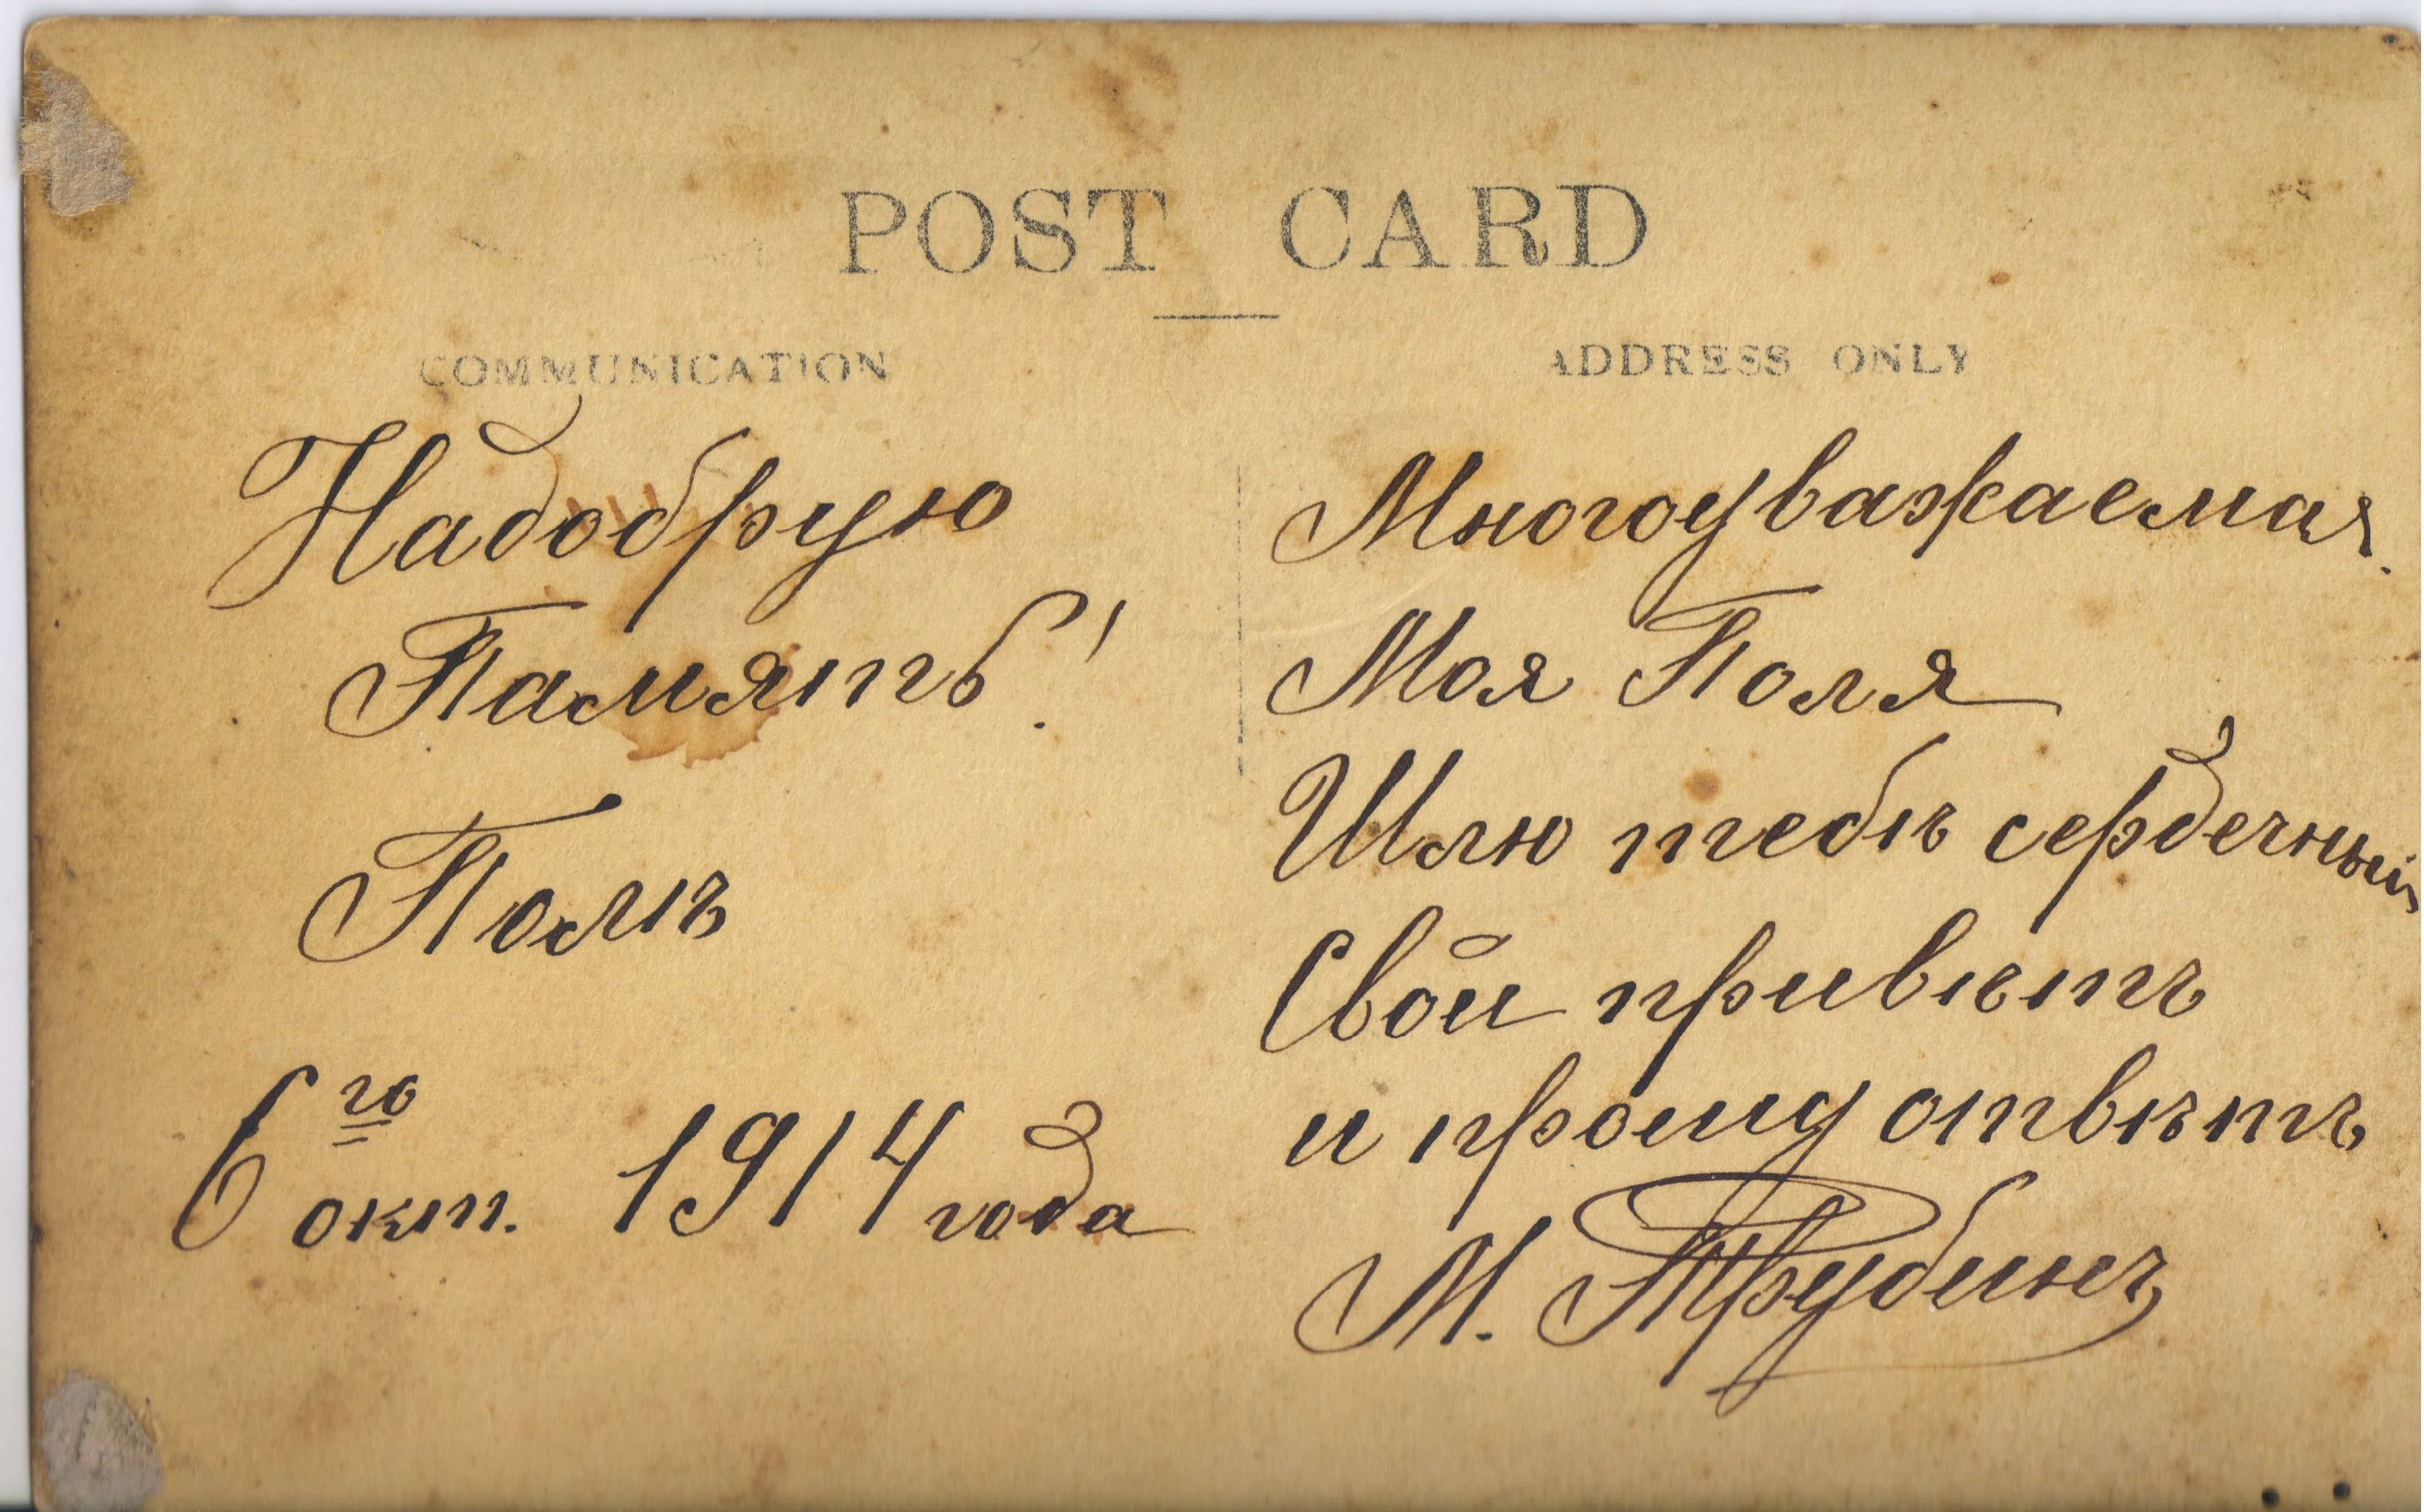 POST CARD
COMMUNICATION
Надобрую
Память!
Полѣ
6го окт. 1914 года
ADDRESS ONLY
Многоуважаемая.
Моя Поля
Шлю тебѣ сердечный
Свой привѣтъ
и прошу отвѣтъ
М. Трубинъ